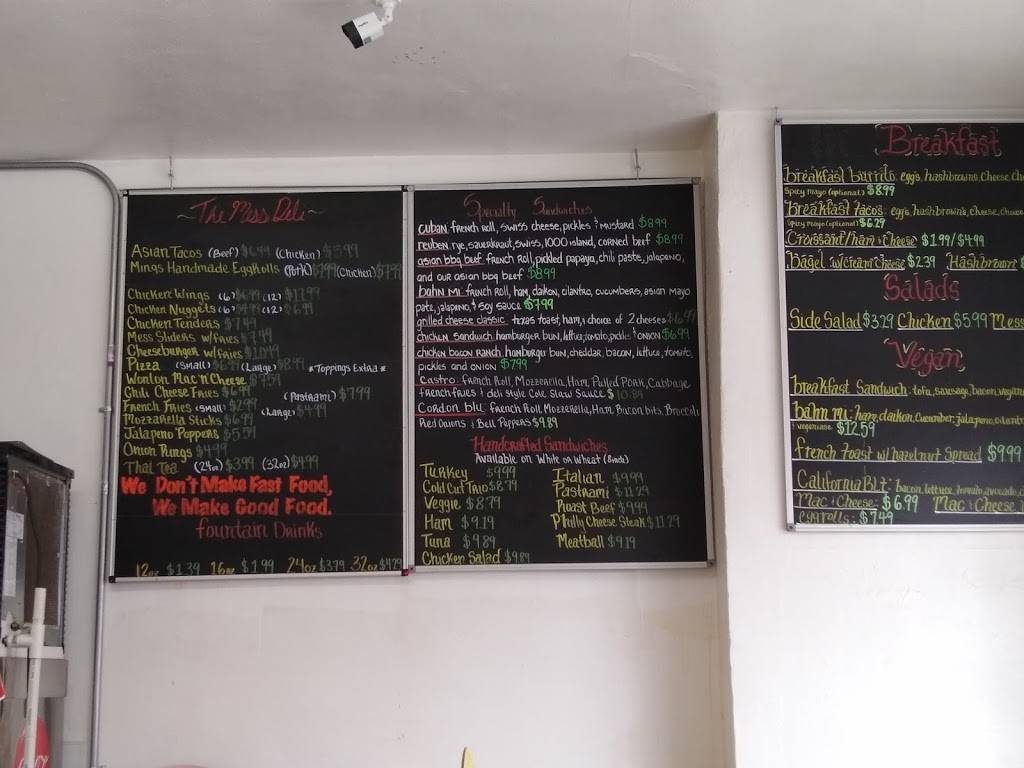 ~The Mess Deli~
Asian Tacos (Beef) $6.99 (Chicken) $5.99
Mings Handmade EggRolls (Pork) $7.99 (Chicken) $7.99
Chicken Wings (6) $6.99 (12) $11.99
Chicken Nuggets (6) (12) $6.99
Chicken Tenders $7.49
Mess Sliders w/fries
Cheeseburger w/fries $10.99
Pizza (Small) (Large) $8.99 *Toppings Extra*
Wonton Mac'n'Cheese
Chili Cheese Fries $6.99 (Pastrami) $7.99
French Fries (Small) $2.99 (Large) $4.99
Mozzarella Sticks $6.99
Jalapeno Poppers $5.59
Onion Rings $4.99
Thai Tea (24oz) $3.99 (32oz) $4.99
We Don't Make Fast Food,
We Make Good Food.
fountain Drinks
12oz $1.39 16oz $1.99 24oz $3.79 32oz $4.29
Specialty Sandwiches
cuban: french roll, swiss cheese, pickles & mustard $8.99
reuben: rye, sauerkraut, swiss, 1000 island, corned beef $8.99
asian bbq beef: french roll, pickled papaya, chili paste, jalapeno,
and our asian bbq beef $8.99
bahn mi: french roll, ham, daikon, cilantro, cucumbers, asian mayo
pate, jalapeno, & soy sauce $7.99
grilled cheese classic: texas toast, ham, & choice of 2 cheeses $6.99
chicken sandwich: hamburger bun, lettuce, tomato, pickle & onion $6.99
chicken bacon ranch: hamburger bun, cheddar, bacon, lettuce, tomato,
pickles and onion $7.99
castro: french Roll, Mozzerella, Ham, Pulled Pork, Cabbage
french fries & deli style Cole Slaw Sauce $10.89
Cordon blu: french Roll, Mozzerella, Ham, Bacon bits, Broccoli
Red Onions & Bell Peppers $9.89
Handcrafted Sandwiches
Available on White or Wheat (8inch)
Turkey $9.99 Italian $9.99
Cold Cut Trio $8.79 Pastrami $11.29
Veggie $8.79 Roast Beef $9.99
Ham $9.19 Philly Cheese Steak $11.29
Tuna $9.89 Meatball $9.19
Chicken Salad $9.89
Breakfast
breakfast burrito: eggs, hashbrowns, Cheese, Ch
Spicy mayo (optional) $8.99
breakfast tacos: eggs, hashbrowns, cheese, choice
Spicy mayo (optional) $6.29
Croissant/ham & Cheese $1.99/$4.99
Bagel w/cream Cheese $2.39 Hashbrown $
Salads
Side Salad $3.29 Chicken $5.99 Mess
Vegan
breakfast Sandwich: tofu, sausage, bacon, vegan
bahn mi: ham, daikon, cucumber, jalapeno, cilantro
& vegenaise $12.59
french toast w/hazelnut Spread $9.99
California Blt: bacon, lettuce, tomato, avocado,
Mac & Cheese: $6.99 Mac & Cheese
egg rolls: $7.49